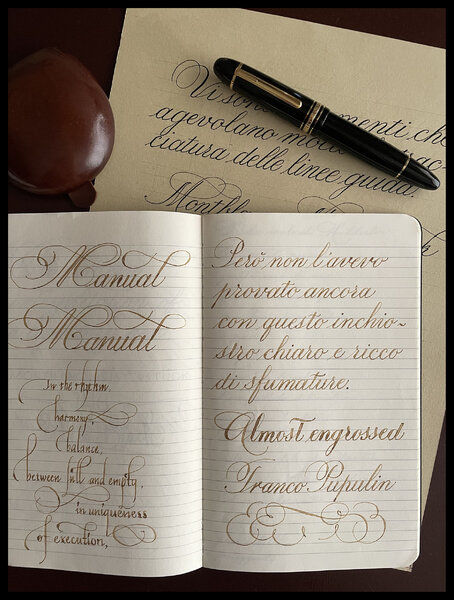 Vi sono
agevolano
ciatura delle linee guida.
Manual
Manual
In the rhythm,
harmony,
balance,
between full and empty,
in uniqueness
of execution,
Però non l'avevo
provato ancora
con questo inchio~
stro chiaro e ricco
di sfumature.
Almost engrossed
Franco Pupulin